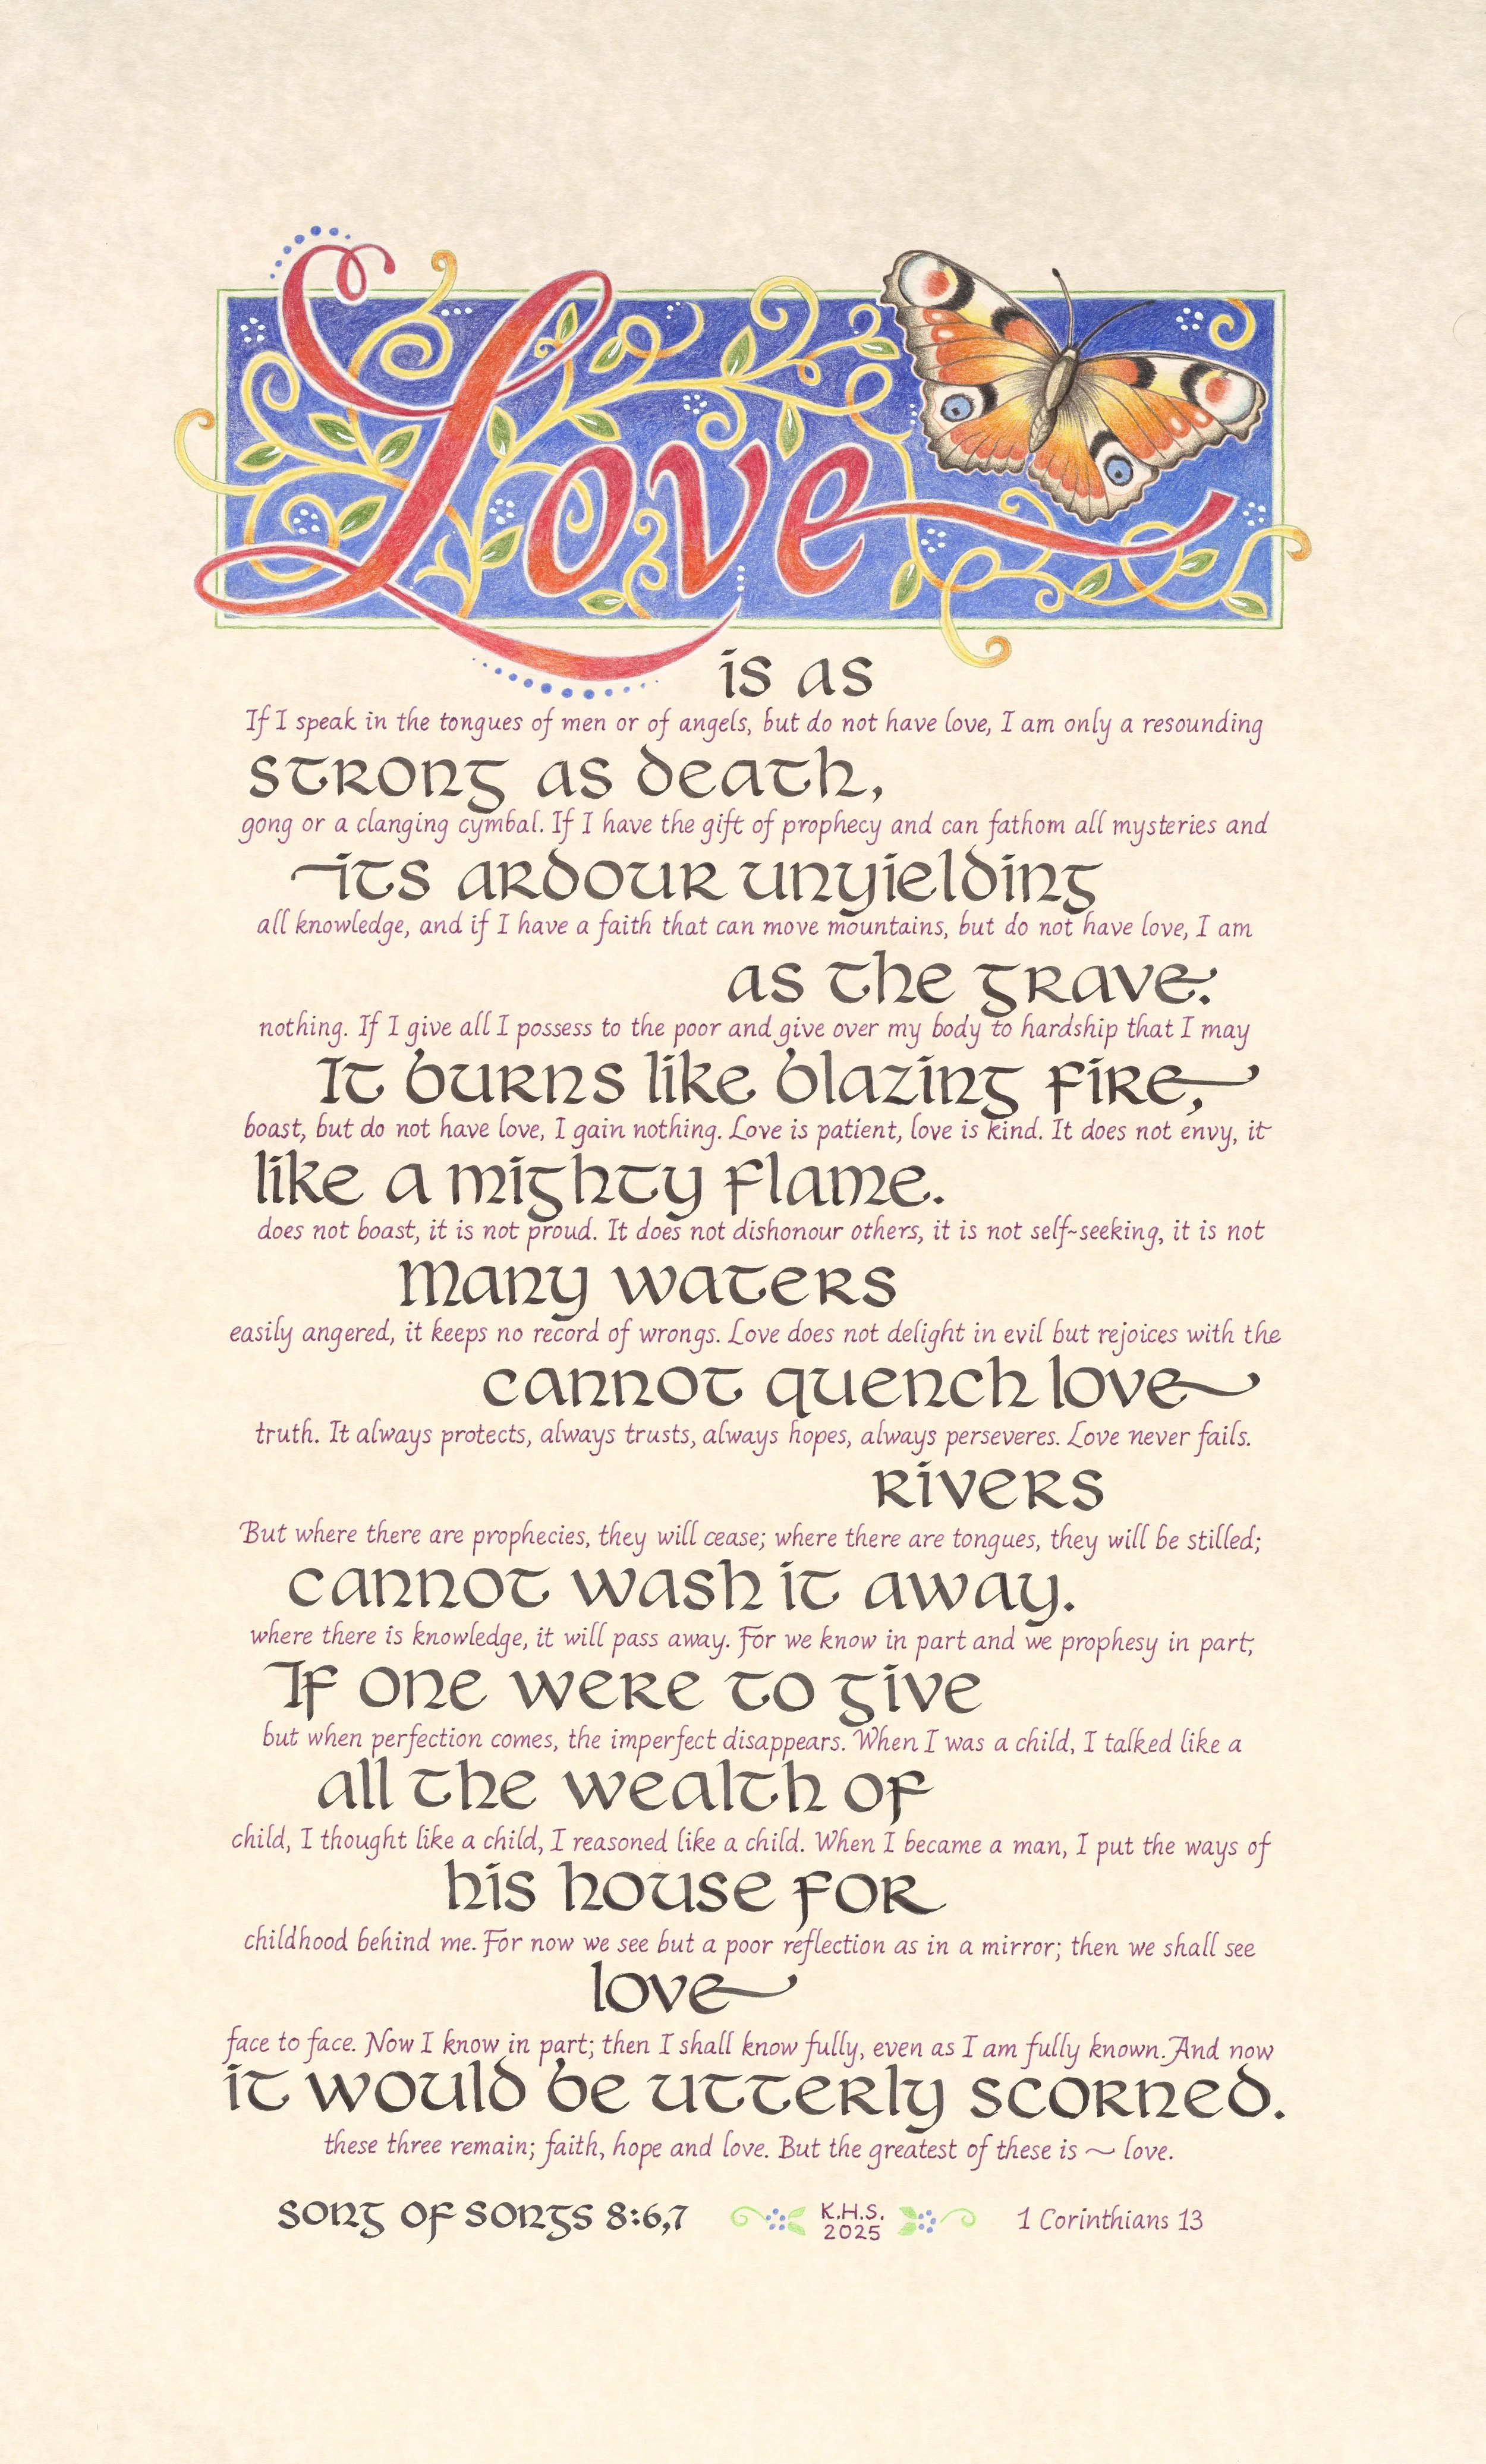 Love
is as
If I speak in the tongues of men or of angels, but do not have love, I am only a resounding
strong as death,
gong or a clanging cymbal. If I have the gift of prophecy and can fathom all mysteries and
its ardour unyielding
all knowledge, and if I have a faith that can move mountains, but do not have love, I am
as the grave.
nothing. If I give all I possess to the poor and give over my body to hardship that I may
It burns like blazing fire,
boast, but do not have love, I gain nothing. Love is patient, love is kind. It does not envy, it
like a mighty flame.
does not boast, it is not proud. It does not dishonour others, it is not self-seeking, it is not
Many waters
easily angered, it keeps no record of wrongs. Love does not delight in evil but rejoices with the
cannot quench love
truth. It always protects, always trusts, always hopes, always perseveres. Love never fails.
rivers
But where there are prophecies, they will cease; where there are tongues, they will be stilled;
cannot wash it away.
where there is knowledge, it will pass away. For we know in part and we prophesy in part;
If one were to give
but when perfection comes, the imperfect disappears. When I was a child, I talked like a
all the wealth of
child, I thought like a child, I reasoned like a child. When I became a man, I put the ways of
his house for
childhood behind me. For now we see but a poor reflection as in a mirror; then we shall see
love
face to face. Now I know in part; then I shall know fully, even as I am fully known. And now
it would be utterly scorned.
these three remain; faith, hope and love. But the greatest of these is ~ love.
Song of Songs 8:6,7
K.H.S.
2025
1 Corinthians 13